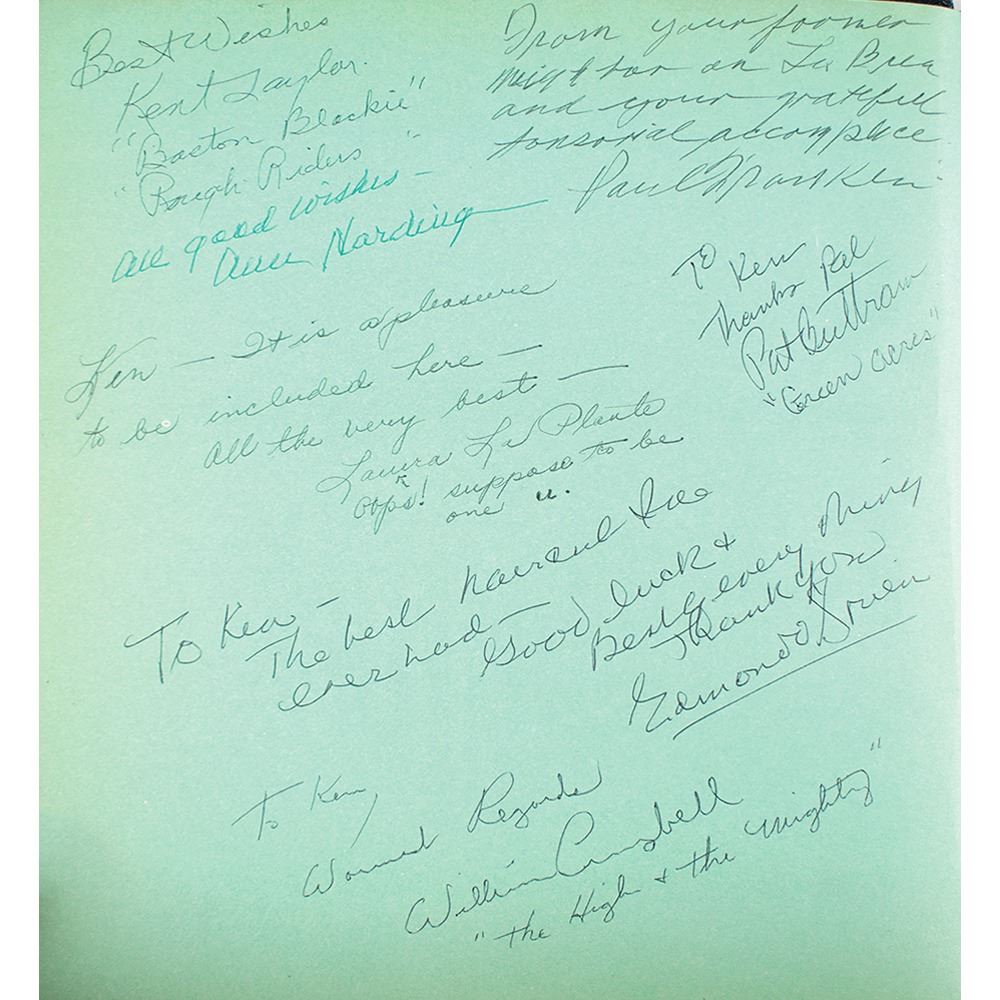 Best Wishes
Kent Taylor.
"Boston Blackie"
"Rough Riders"
All good wishes –
Ann Harding
From your former
neighbor on La Brea
and your grateful
tonsorial accomplice
Paul Franken
To Ken
Thanks Pal
Pat Buttram
"Green acres"
Ken – It is a pleasure
to be included here –
All the very best –
Laura La Plante
oops! suppose to be
one "u".
To Ken –
The best haircut I've
ever had – Good luck &
Best of every thing
Thank you
Edmond O'Brien
To Ken,
Warmest Regards
William Campbell
"The High & the Mighty"